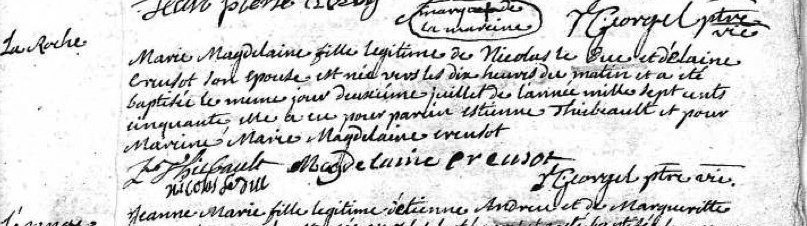 Jean pierre
marque de
la mareine
Georgel ptre
vic
La Roche
Marie Magdelaine fille legitime de Nicolas le Duc et délaine
creusot son epouse est née vers les dix heures du matin et a été
baptisée le meme jour deuxiéme juillet de l'année mille sept cents
cinquante elle a eu pour parein estienne Thiebeault et pour
Mareine Marie Magdelaine creusot
Thiebault Magdelaine creusot
nicolas le
Georgel ptre vic.
Jeanne Marie fille legitime d'étienne Andreu et de Margueritte